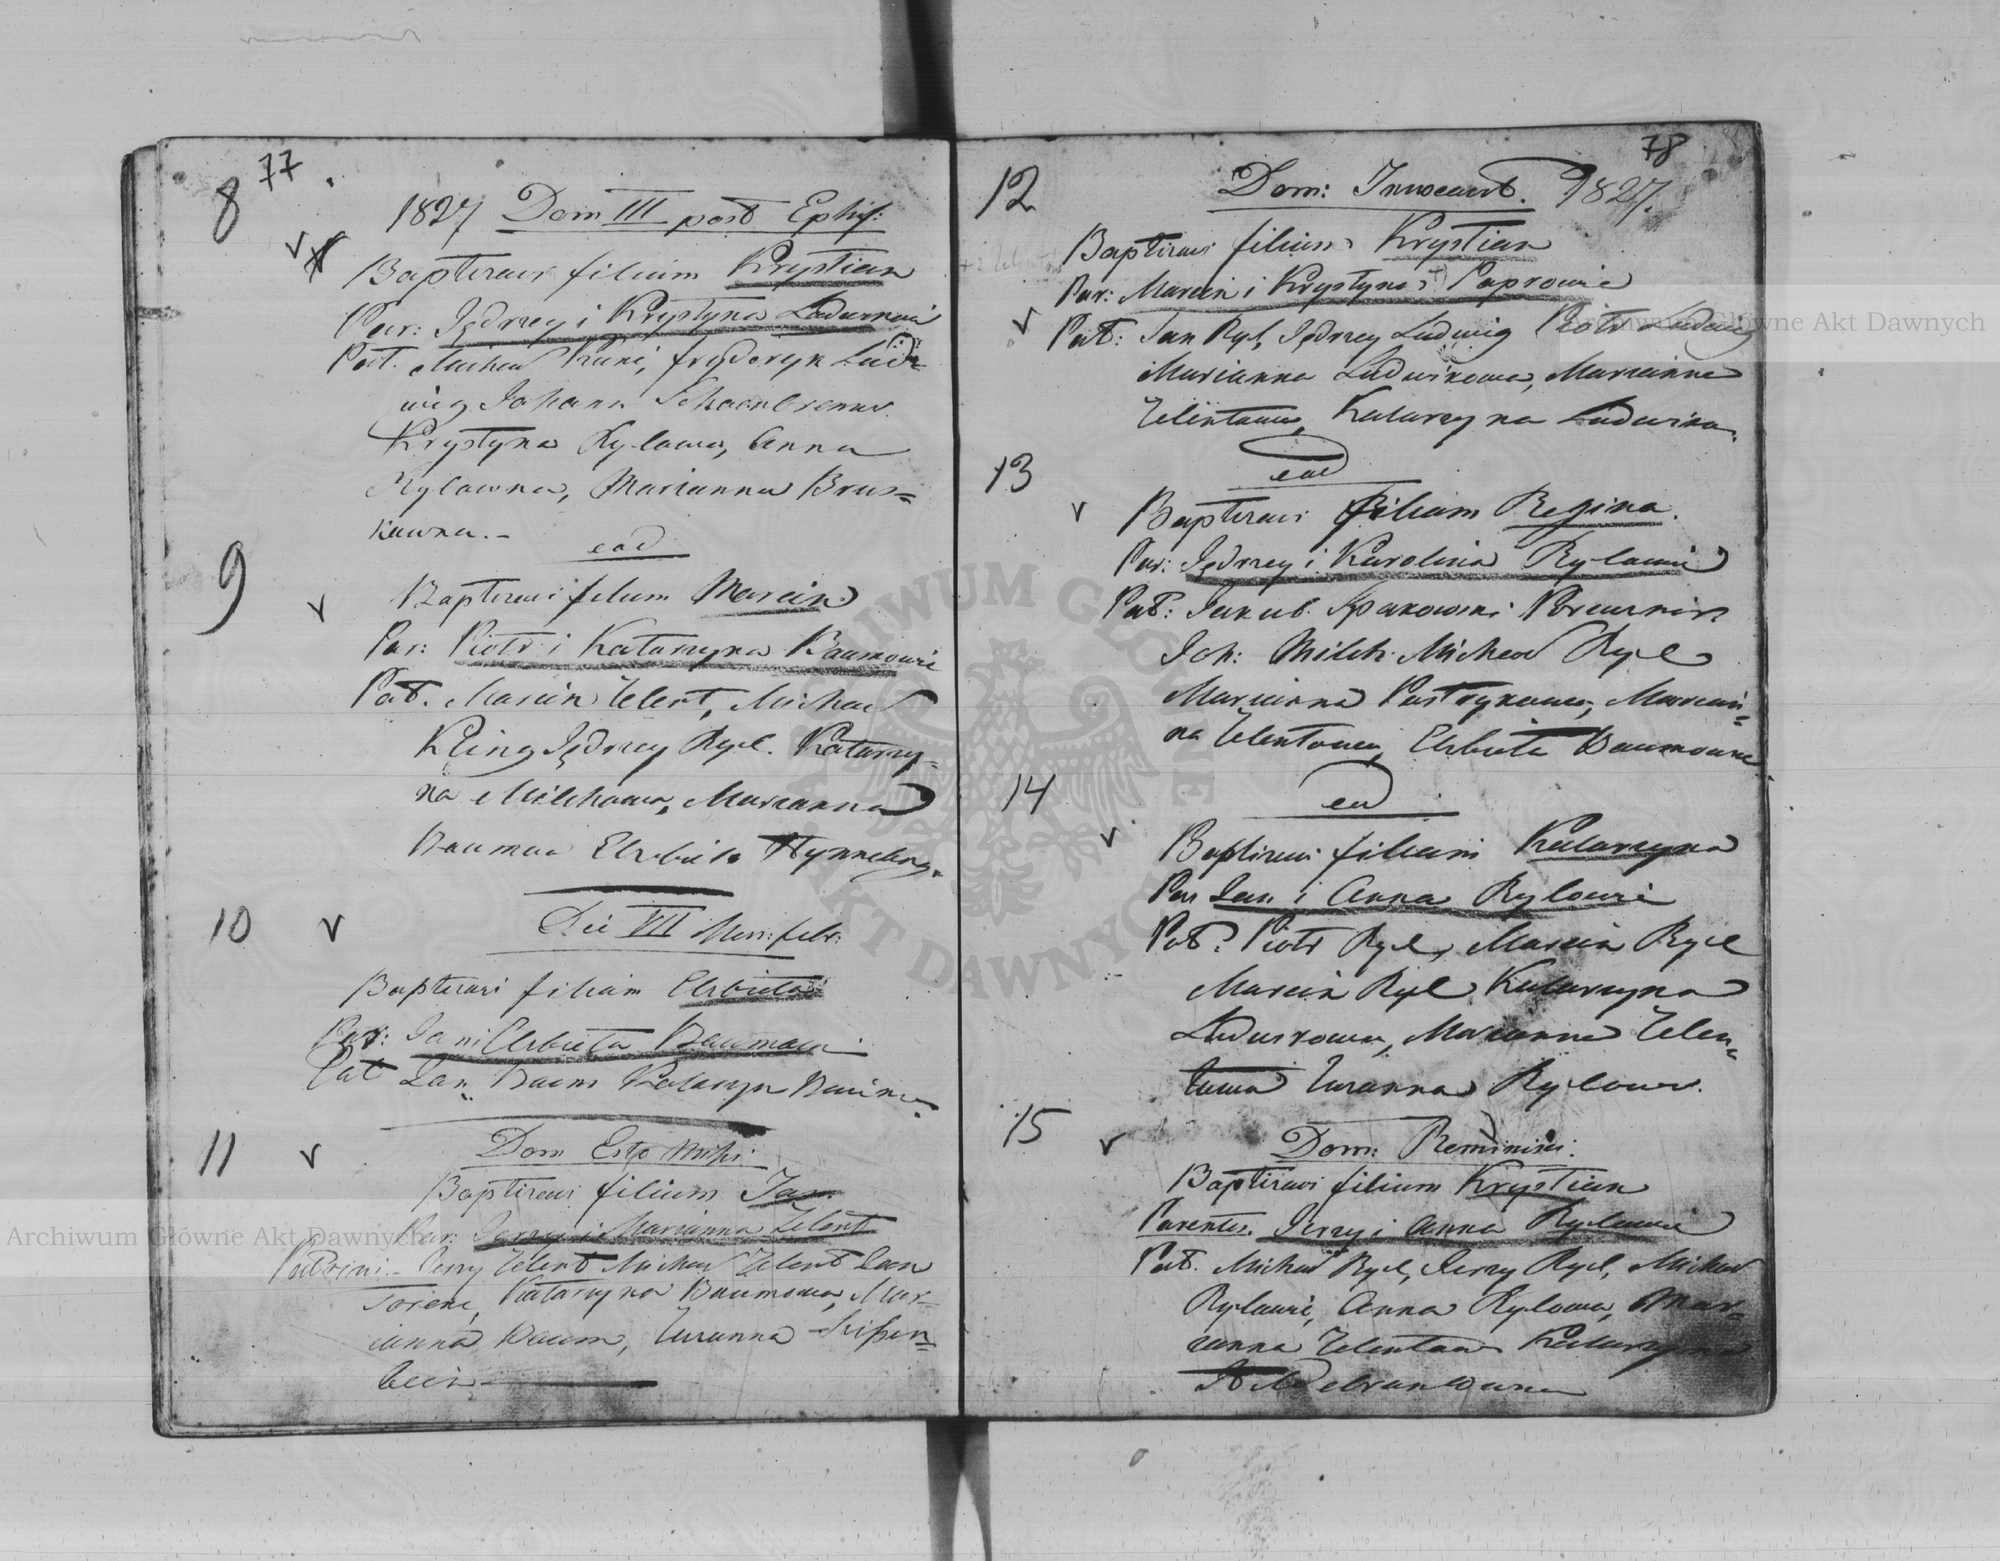 77
8
1827 Dom III post Epiph:
Baptizavi filium Krystian
Par: Jędrzey i Krystyna Ludwikowi
Pat. Michael Kuni, Frydoryk Lud=
wig Johann
Krystyna Rylowa, Anna
Rylowna, Marianna Brus=
kowna.-
9
ead
Baptizavi filium Marcin
Par: Piotr i Katarzyna Baumowie
Pat. Marcin Zelent, Michael
Kling Jędrzey Ryl. Katarzy=
na Milchowa, Marianna
Bauman Elzbieta
10
Die VII Men: febr:
Baptizavi filiam Elzbieta
Par: Jan i Elzbieta Baumowie
Pat Jan Baum Katarzyn
11
Dom Esto Mihi
Baptizavi filium Jan
Par: Jerzy i Marianna Zelent
Patrini.- Jerzy Zelent Michael Zelent Jan
Katarzyna Baumowa, Mar=
ianna Baum, Zuzanna
bein
78
12
Dom: Invocavit. 1827.
Baptizavi filium Krystian
Par: Marcin i Krystyna Paprowie
Pat: Jan Ryl, Jędrzey Ludwig Piotr Ludwig
Marianna Ludwikowa, Marianna
Zelentowa, Katarzyna Ludwika.
13
ead
Baptizavi filiam Regina.
Par: Jędrzey i Karolina Rylowie
Pat: Jakub Spakowski
Joh: Milch Michael Ryl
Marianna Pastrykowa, Marian=
na Zelentowa, Elzbieta Baumowna
14
ead
Baptizavi filiam Katarzyna
Par Jan i Anna Rylowie
Pat: Piotr Ryl, Marcin Ryl
Marcin Ryl Katarzyna
Ludwikowa, Marianna Zelen=
towa Zuzanna Rylowa.
15
Dom: Reminisci:
Baptizavi filium Krystian
Parentes. Jerzy i Anna Rylowie
Pat. Michael Ryl, Jerzy Ryl, Michael
Rylowie, Anna Rylowa, Mar=
ianna Zelentowa Katarzyna
Archiwum Główne Akt Dawnych
Archiwum Główne Akt Dawnych
ARCHIWUM GŁÓWNE AKT DAWNYCH